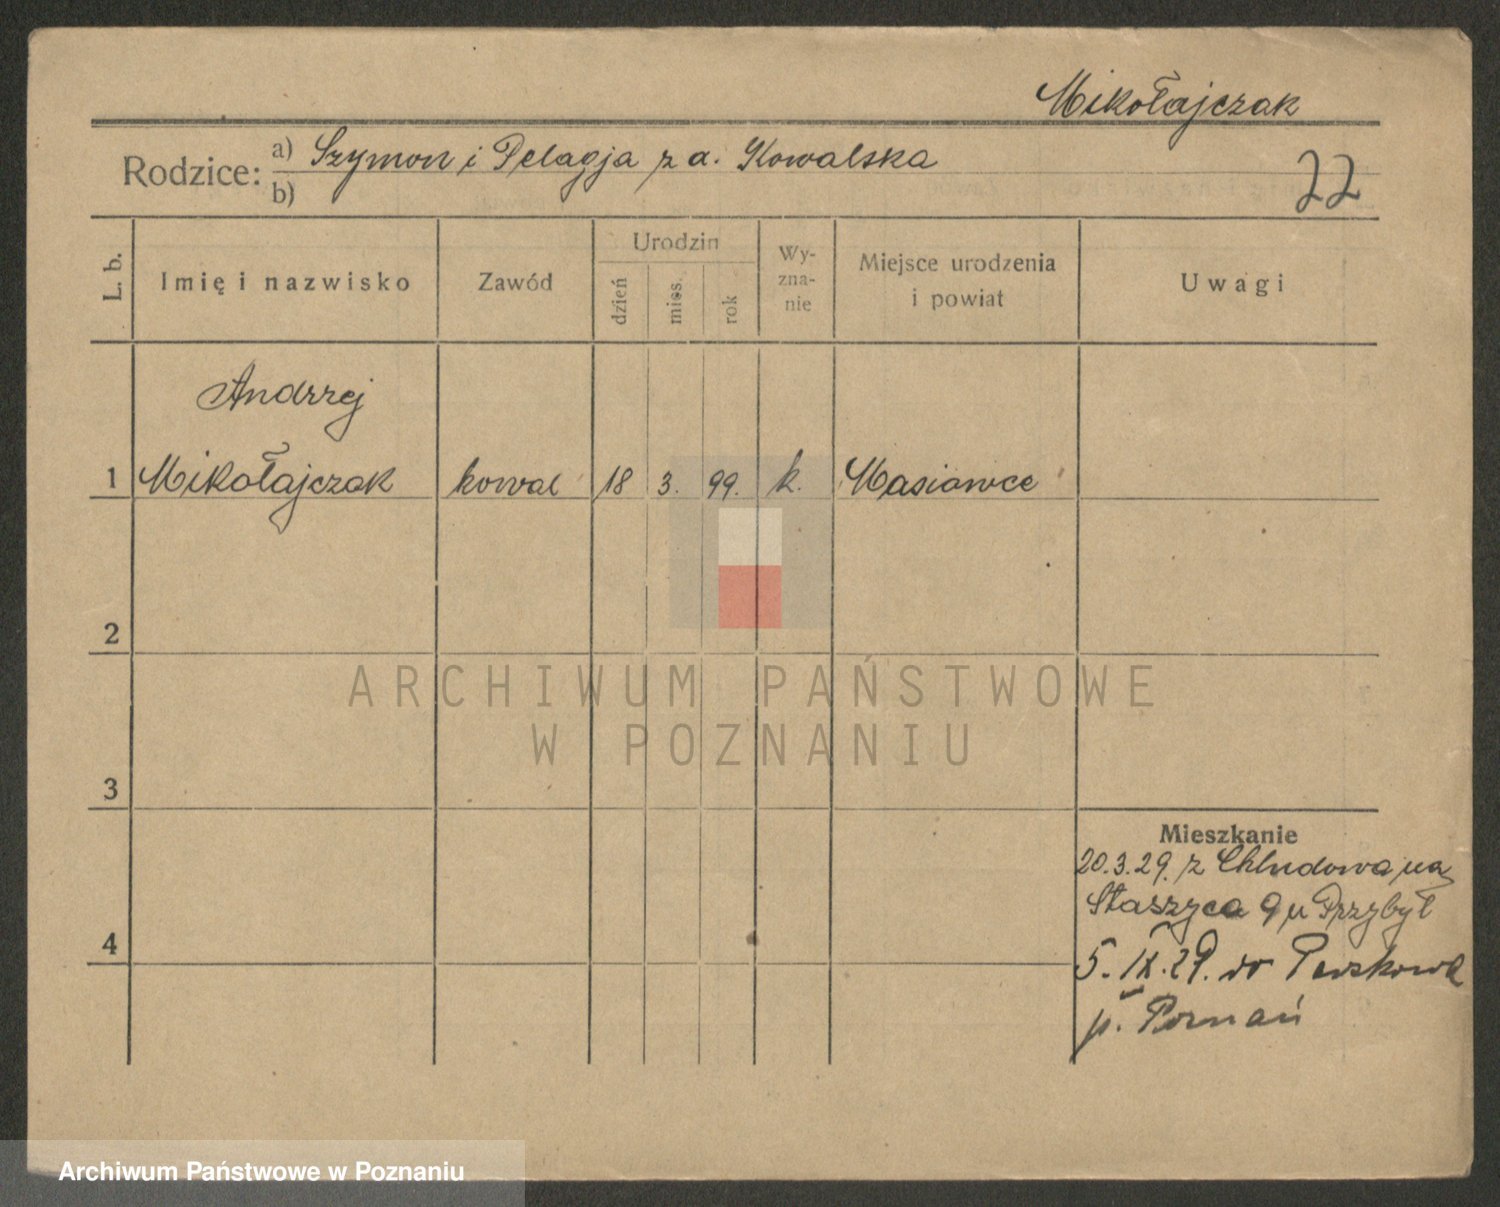 Mikołajczak
Rodzice: a) Szymon i Pelagja z d. Kowalska
b)
22
L. b.
Imię i nazwisko
Zawód
Urodzin
dzień
mies.
rok
Wy-
zna-
nie
Miejsce urodzenia
i powiat
Uwagi
Andrzej
1 Mikołajczak kowal 18 3. 99. k.
2
3
4
Mieszkanie
20.3.29. z Chludowa na
Staszyca 9 u Przybył
5. IX. 29. do
p. Poznań
ARCHIWUM PAŃSTWOWE
W POZNANIU
Archiwum Państwowe w Poznaniu